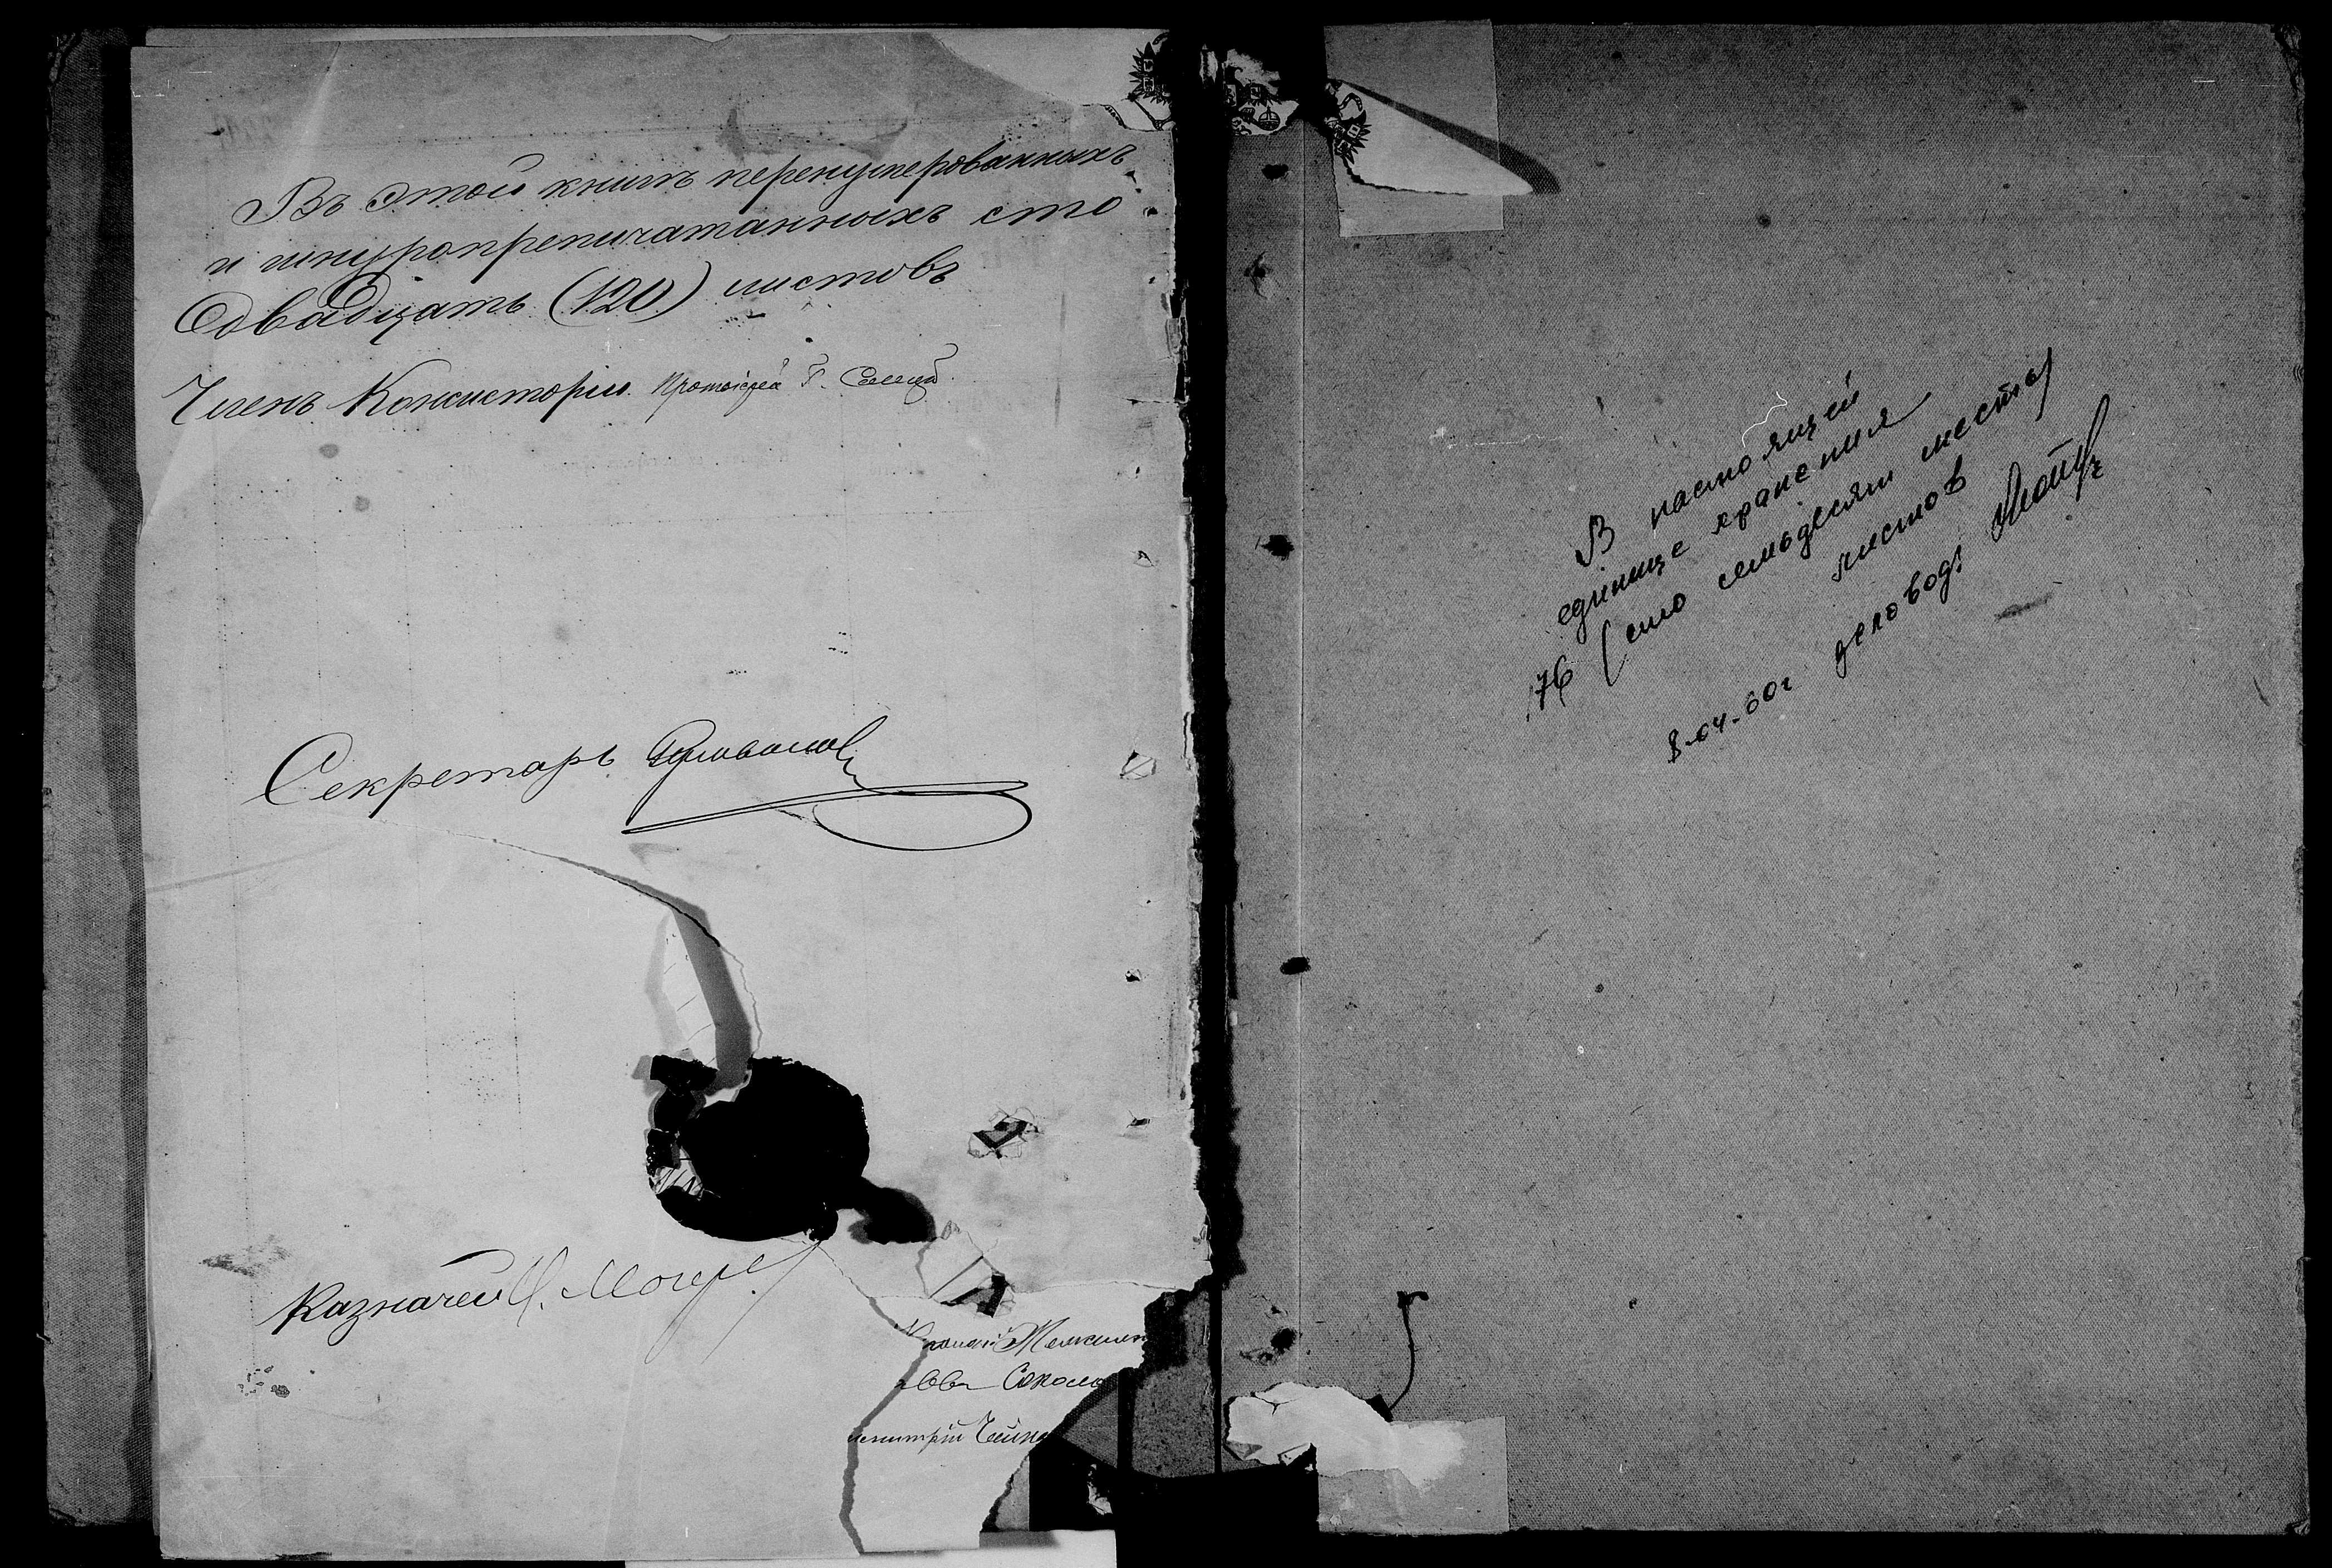 Въ этой книгѣ перенумерованныхъ
и шнуропрепичатанныхъ сто
двадцать (120) листовъ
Членъ Консисторіи Протоіерей Г.
Секретарь
Казначей
Соколо
В настоящей
единице хранения
176 (сто семьдесят шесть)
листов
8-04-60г деловод: